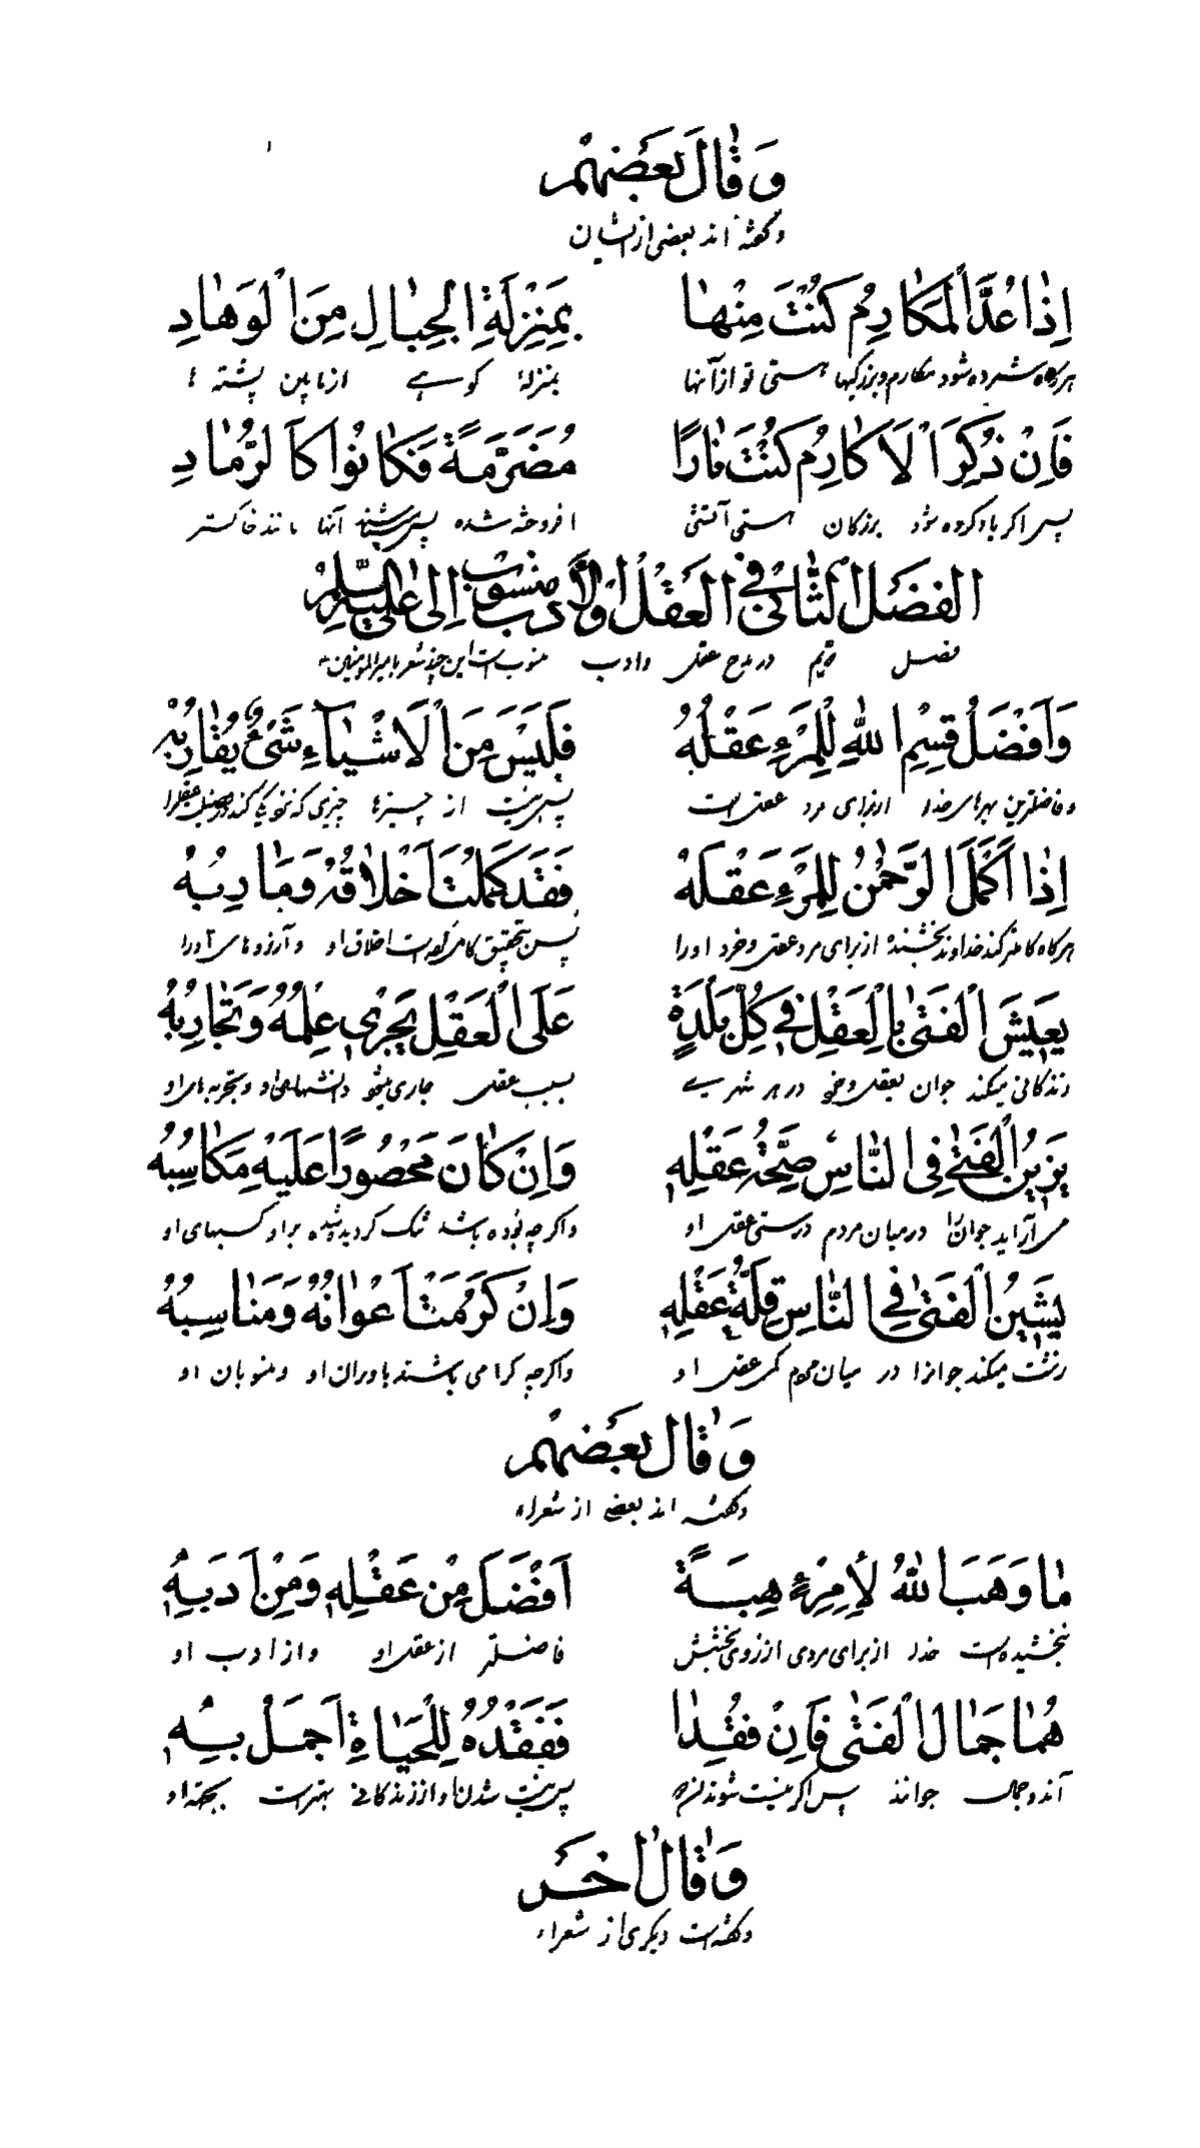 وَقَالَ بَعْضُهُمْ
وگفته اند بعضی از ایشان
اِذَا عُدَّ الْمَكَارِمُ كُنْتَ مِنْهَا بِمَنْزِلَةِ الْجِبَالِ مِنَ الْوَهَادِ
هرگاه شمرده شود مکارم و بزرگیها هستی تو از آنها بمنزلهٔ کوهے از پشته
فَاِنْ ذُكِرَ الْاَكَارِمُ كُنْتَ نَارًا مُضَرَّمَةً فَكَانُوا كَالرَّمَادِ
پس اگر یاد کرده شود بزرکان هستی آتشی افروخته شده پس آنها مانند خاکستر
الفَصْلُ الثَّانِي فِي الْعَقْلِ وَالْاَدَبِ مَنْسُوبٌ اِلٰى عَلِيٍّ عَلَيْهِ السَّلَمُ
فصل دویم در مدح عقل وادب منسوب است این چند شعر بامیرالمؤمنین
وَاَفْضَلُ قِسْمِ اللهِ لِلْمَرْءِ عَقْلُهُ فَلَيْسَ مِنَ الْاَشْيَآءِ شَيْءٌ يُقَارِبُهُ
وفاضلترین بهرهای خدا از برای مرد عقل است پس نیست از چیزها چیزی که
اِذَا اَكْمَلَ الرَّحْمٰنُ لِلْمَرْءِ عَقْلَهُ فَقَدْ كَمُلَتْ اَخْلَاقُهُ وَمَآرِبُهُ
هرگاه کامل کند خداوند بخشنده از برای مرد عقل و خرد اورا پس بتحقیق کامل است اخلاق او وآرزوهای اورا
يَعِيشُ الْفَتٰى بِالْعَقْلِ فِي كُلِّ بَلْدَةٍ عَلَى الْعَقْلِ يَجْرِي عِلْمُهُ وَتَجَارِبُهُ
زندکانی میکند جوان بعقل در هر شهرے بسبب عقل جاری میشود دانشهای او وتجربه های او
يَزِينُ الْفَتٰى فِي النَّاسِ صِحَّةُ عَقْلِهِ وَاِنْ كَانَ مَحْصُورًا عَلَيْهِ مَكَاسِبُهُ
می آراید جوان را در میان مردم درستی عقل او واکرچه بوده باشد تنک کردیده بر او کسبهای او
يَشِينُ الْفَتٰى فِي النَّاسِ قِلَّةُ عَقْلِهِ وَاِنْ كَرُمَتْ اَعْوَانُهُ وَمَنَاسِبُهُ
زشت میکند جوانرا در میان مردم کمی عقل او واکرچه کرامی باشند یاوران او ومنسوبان او
وَقَالَ بَعْضُهُمْ
وگفته اند بعضی از شعراء
مَا وَهَبَ اللهُ لِأمْرِءٍ هِبَةً اَفْضَلَ مِنْ عَقْلِهِ وَمِنْ اَدَبِهِ
نبخشیده است خدا از برای مردی از روی بخشش فاضلتر از عقل او واز ادب او
هُمَا جَمَالُ الْفَتٰى فَاِنْ فُقِدَا فَفَقْدُهُ لِلْحَيَاةِ اَجْمَلُ بِهِ
آندو جمال جوانند پس اکر نیست شوند پس نیست شدن او از زندکانی بهتر است
وَقَالَ اٰخَرُ
وگفته است دیکری از شعراء